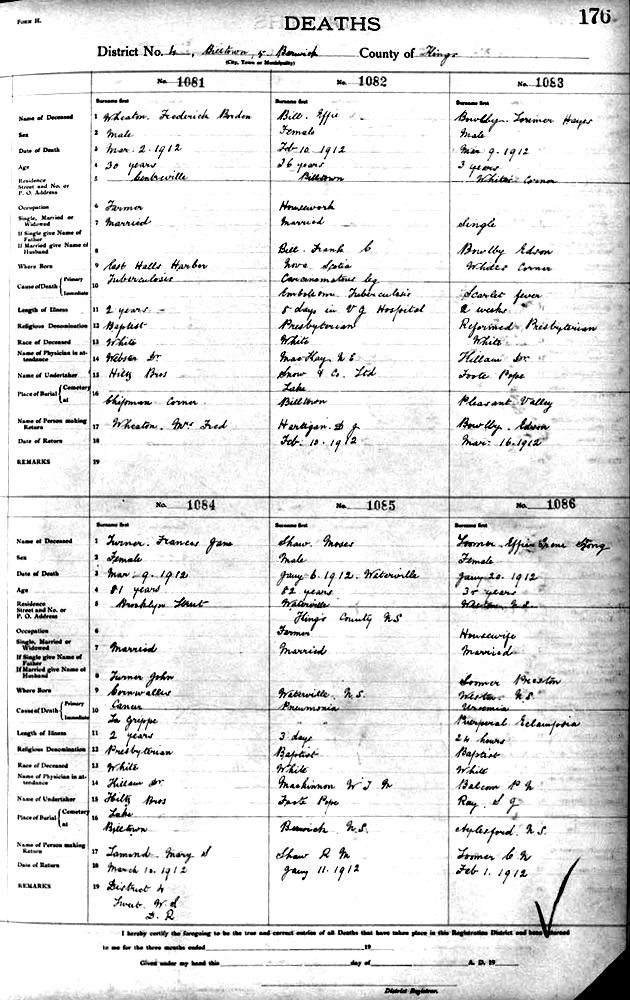 FORM H.
DEATHS
176
District No. 4, Billtown & Berwick County of Kings
(City, Town or Municipality)
No. 1081 No. 1082 No. 1083
Surname first Surname first Surname first
Name of Deceased 1 Wheaton, Frederick Borden Bill, Effie Bowlby, Lorimer Hayes
Sex 2 Male Female Male
Date of Death 3 Mar. 2. 1912 Feb 10. 1912 Mar 9. 1912
Age 4 30 years 36 years 3 years
Residence 5 Centreville Billtown Whites Corner
Street and No. or
P. O. Address
Occupation 6 Farmer Housework
Single, Married or Widowed 7 Married Married Single
If Single give Name of Father
If Married give Name of Husband 8 Bill Frank C Bowlby Edson
Where Born 9 East Halls Harbor Nova Scotia Whites Corner
Cause of Death Primary 10 Tuberculosis Carcinomatous leg
Immediate Embolism Tuberculosis Scarlet fever
Length of Illness 11 2 years 5 days in V G Hospital 2 weeks
Religious Denomination 12 Baptist Presbyterian Reformed Presbyterian
Race of Deceased 13 White White White
Name of Physician in attendance 14 Webster Dr MacKay N E
Name of Undertaker 15 Hiltz Bros Snow & Co. Ltd Foote Pope
Place of Burial Cemetery 16 Lake
at Chipman Corner Billtown Pleasant Valley
Name of Person making Return 17 Wheaton Mrs Fred Hartigan D J Bowlby, Edson
Date of Return 18 Feb. 10. 1912 Mar. 16. 1912
REMARKS 19
No. 1084 No. 1085 No. 1086
Surname first Surname first Surname first
Name of Deceased 1 Turner, Frances Jane Shaw, Moses Loomer, Effie Irene
Sex 2 Female Male Female
Date of Death 3 Mar. 9. 1912 Jany 6. 1912. Waterville Jany 20. 1912
Age 4 81 years 82 years 30 years
Residence 5 Brooklyn Street Waterville
Street and No. or Kings County N S
P. O. Address
Occupation 6 Farmer Housewife
Single, Married or Widowed 7 Married Married Married
If Single give Name of Father
If Married give Name of Husband 8 Turner John Loomer Preston
Where Born 9 Cornwallis Waterville N. S. N. S.
Cause of Death Primary 10 Cancer Pneumonia Uraemia
Immediate La grippe " " Puerperal Eclampsia
Length of Illness 11 2 years 3 days 24 hours
Religious Denomination 12 Presbyterian Baptist Baptist
Race of Deceased 13 White White White
Name of Physician in attendance 14 Mackinnon W J M Balcom P N
Name of Undertaker 15 Hiltz Bros Foote Pope Ray
Place of Burial Cemetery 16 Lake
at Billtown Berwick N. S. Aylesford N. S.
Name of Person making Return 17 Lamond Mary S Shaw R M Loomer C N
Date of Return 18 March 10. 1912 Jany 11. 1912 Feb 1. 1912
REMARKS 19 District 4
Sweet W. S
D. R
I hereby certify the foregoing to be the true and correct entries of all Deaths that have taken place in this Registration District and been
to me for the three months ended 19
Given under my hand this day of A. D. 19
District Registrar.